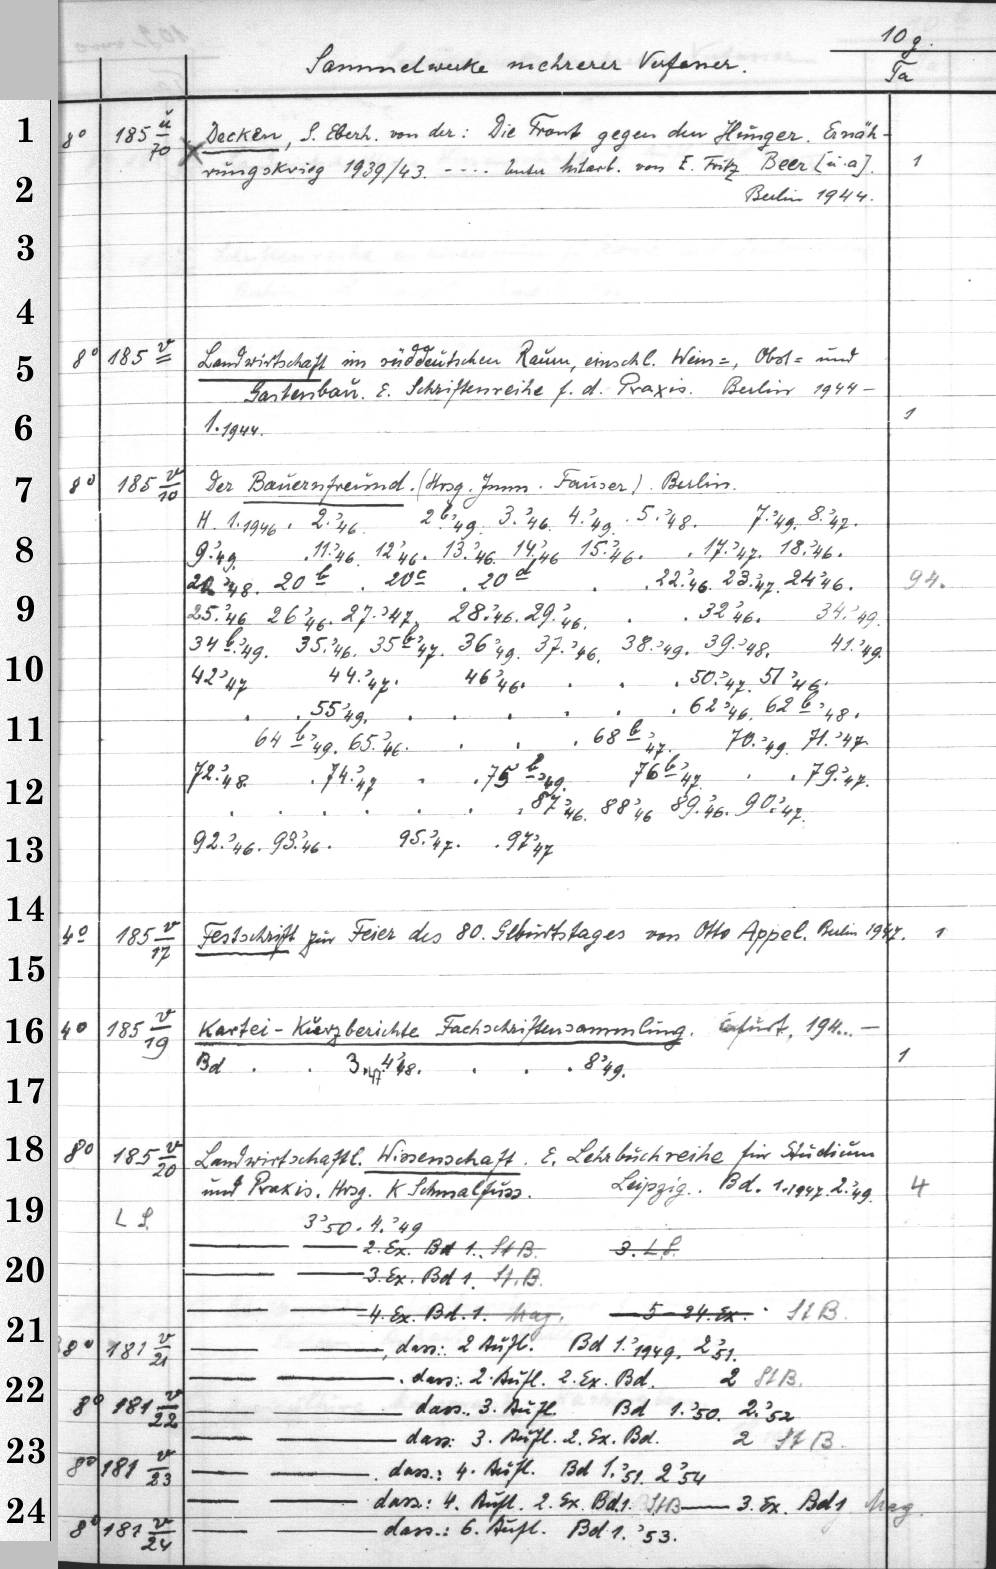 10 g.
Sammelwerke mehrerer Verfasser.
Ta
1 8° 185 ü/70 Decken, S. Eberh. von der: Die Front gegen den Hunger. Ernäh-
rungskrieg 1939/43. -.... Unter Mitarb. von E. Fritz Beer [u. a]. 1
2 Berlin 1944.
3
4
5 8° 185 v Landwirtschaft im süddeutschen Raum, einschl. Wein=, Obst= und
Gartenbau. E. Schriftenreihe f. d. Praxis. Berlin 1944 –
6 1. 1944. 1
7 8° 185 v/10 Der Bauernfreund. (Hrsg. Imm. Fauser). Berlin.
H. 1. 1946. 2.'46. 2 b'49. 3.'46. 4.'49. 5.'48. 7.'49. 8.'47.
8 9.'49. 11.'46 12'46. 13.'46 14.'46 15.'46. 17.'47. 18.'46.
'48. 20 b . 20 c . 20 d . . 22.'46. 23.'47. 24'46. 94.
9 25.'46 26'46. 27.'47. 28.'46. 29.'46. . . 32'46. 34.'49.
34 b.'49. 35.'46. 35 b'47. 36'49. 37.'46. 38.'49. 39.'48. 41.'49.
10 42'47 44.'47. 46'46. . . . 50.'47. 51'46.
. . 55'49. . . . . . . 62'46. 62 b'48.
11 64 b'49. 65.'46. . . . 68 b'47. 70.'49. 71.'47
72.'48. . 74.'47 . . 75 b'49. 76 b'47 . . 79.'47.
12 . . . . . . . 87'46. 88'46 89.'46. 90.'47.
13 92.'46. 93.'46. 95.'47. . 97'47
14
4° 185 v/17 Festschrift zur Feier des 80. Geburtstages von Otto Appel. Berlin 1947. 1
15
16 4° 185 v/19 Kartei-Kurzberichte Fachschriftensammlung. Erfurt, 194.. –
Bd . . 3.'47 4'48. . . . 8'49. 1
17
18 8° 185 v/20 Landwirtschaftl. Wissenschaft. E. Lehrbuchreihe für Studium
und Praxis. Hrsg. K Schmalfuss. Leipzig.. Bd. 1. 1947. 2.'49. 4
19 L S. 3'50. 4.'49
— — 2. Ex. Bd 1. St B. 3. L S.
20 — — 3. Ex. Bd 1. St. B.
— — 4. Ex. Bd. 1. Mag. — 5–24. Ex. St B.
21 8° 181 v/21 — —, dass.: 2 Aufl. Bd 1. 1949. 2'51.
— —. dass.: 2. Aufl. 2. Ex. Bd. 2 St B.
22 8° 181 v/22 — — dass. 3. Aufl. Bd 1.'50. 2.'52
— — dass: 3. Aufl. 2. Ex. Bd. 2 St B.
23 8° 181 v/23 — —. dass.: 4. Aufl. Bd 1.'51. 2'54
24 — — dass: 4. Aufl. 2. Ex. Bd 1. St B — 3. Ex. Bd 1 Mag.
8° 181 v/24 — — dass.: 6. Aufl. Bd 1. '53.